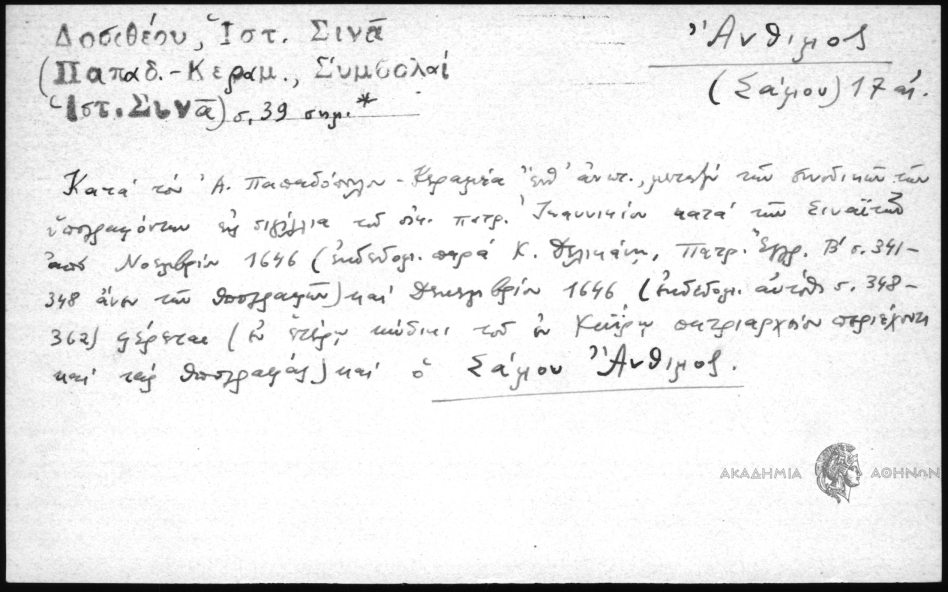 Δοσιθέου, Ἱστ. Σινᾶ
(Παπαδ.-Κεραμ., Συμβολαὶ
Ἱστ. Σινᾶ) σ. 39 σημ.*
Ἄνθιμος
(Σάμου) 17 αἰ.
Κατὰ τὸν Ἀ. Παπαδόπουλον-Κεραμέα ἔνθ' ἀνωτ., μεταξὺ τῶν συνοδικῶν τῶν
ὑπογραφόντων εἰς σιγίλλια τοῦ οἰκ. πατρ. Ἰωαννικίου κατὰ τῶν Σιναϊτῶν
ἀπὸ Νοεμβρίου 1646 (ἐκδεδομ. παρὰ Κ. Δελικάνη, Πατρ. Ἔγγρ. Β' σ. 341-
348 ἄνευ τῶν ὑπογραφῶν) καὶ Δεκεμβρίου 1646 (ἐκδεδομ. αὐτόθι σ. 348-
362) φέρεται (ἐν ἑτέρῳ κώδικι τοῦ ἐν Καΐρῳ πατριαρχείου περιέχοντι
καὶ τὰς ὑπογραφάς) καὶ ὁ Σάμου Ἄνθιμος.
ΑΚΑΔΗΜΙΑ ΑΘΗΝΩΝ